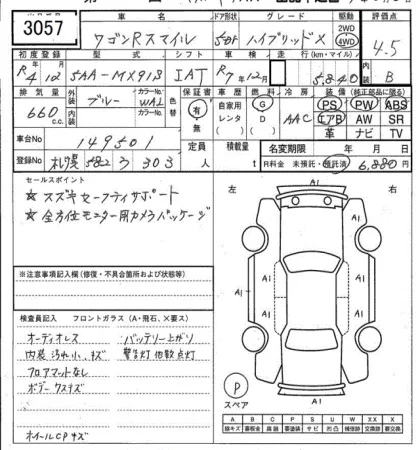 3057
車名 ドア形状 グレード 駆動 評価点
ワゴンRスマイル 5DF ハイブリッドX 2WD 4WD 4.5
初度登録 型式 シフト 車検 走行(km・マイル) 内装
R4/12 5AA-MX91S IAT R7年12月 5840 B
排気量 外装 カラーNo. 色替 保証書 車歴 燃料 冷房 装備(純正部品に限る)
660 c.c. ブルー WAL 有・無 自家用 レンタ G D AAC PS PW ABS
内装 カラーNo. エアB AW SR
革 ナビ TV
車台No 149501 定員 人 積載量 t
名変期限 年 月 日
登録No 札幌 582 ラ 303
R料金 未預託・預託済 6,880円
セールスポイント
★ スズキセーフティサポート
★ 全方位モニター用カメラパッケージ
左 右
A1
A1 A1
A1 A1
A1
A1
P
スペア
※注意事項記入欄(修復・不具合箇所および状態等)
検査員記入 フロントガラス(A・飛石、×要ス)
オーディオレス バッテリー上がり
内装 汚れ小、キズ 警告灯 他数点灯
フロアマットなし
ボデー クスキズ
ホイールCPキズ
A B C P S U W XX X
線キズ 要板金 腐蝕 要塗装 サビ 凹凸 補修跡 交換跡 要交換